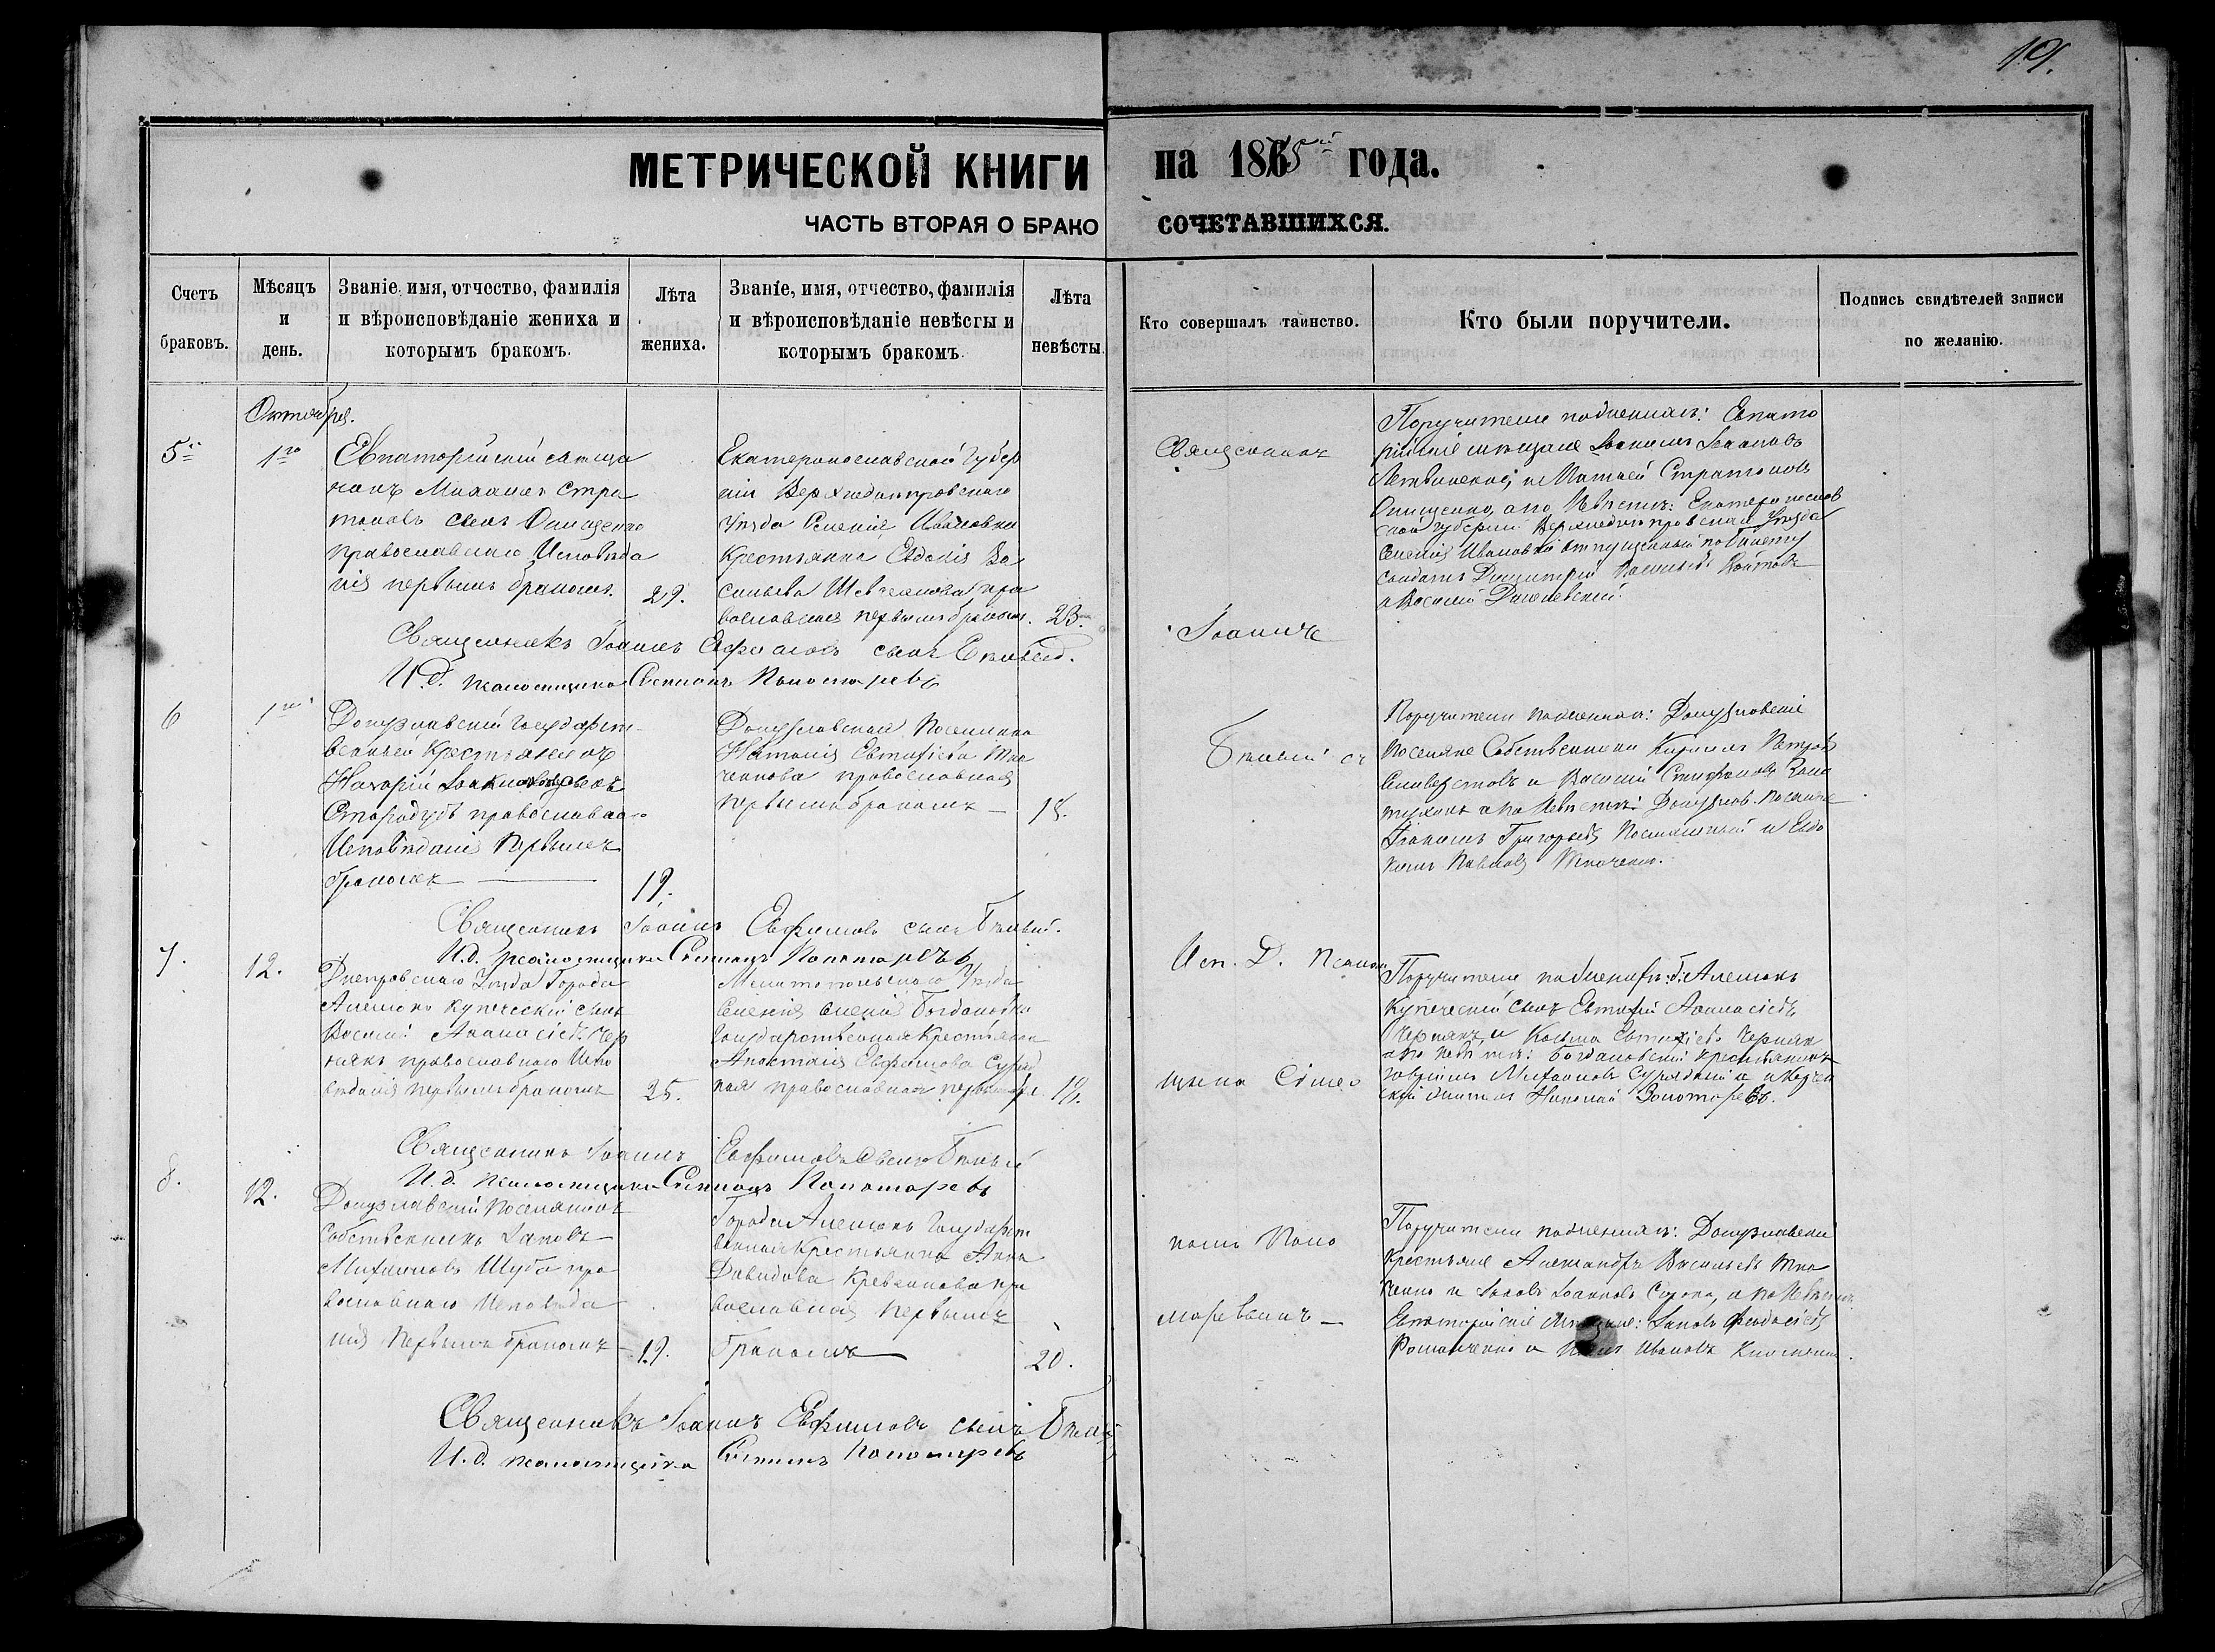 19.
МЕТРИЧЕСКОЙ КНИГИ на 1875й года.
ЧАСТЬ ВТОРАЯ О БРАКО СОЧЕТАВШИХСЯ.
Счетъ браковъ.
Мѣсяцъ и день.
Званіе, имя, отчество, фамилія
и вѣроисповѣданіе жениха и
которымъ бракомъ.
Лѣта жениха.
Званіе, имя, отчество, фамилія
и вѣроисповѣданіе невѣсты и
которымъ бракомъ.
Лѣта невѣсты.
Кто совершалъ таинство.
Кто были поручители.
Подпись свидѣтелей записи
по желанію.
Октября.
5й
1го
Евпаторійскій мѣща
нинъ Михаилъ Стра
тоновъ сынъ Онищенко
православнаго Исповѣда
нія первымъ бракомъ.
29.
Екатеринославской Губер
ніи Верхнеднѣпровскаго
Уѣзда Селенія Ивановки
Крестьянка Евдокія Ва
сильева Шевченкова пра
вославная первымъ бракомъ.
23.
Священникъ
Іоаннъ
Бѣлый съ
Исп. Д. Псалом
щика Симео
номъ Поно
маревымъ
Поручители по женихѣ: Евпато
рійскіе мѣщане Іоаннъ Іоанновъ
Литвиненко и Матвей Стратоновъ
Онищенко, а по Невѣстѣ: Екатеринослав
ской губерніи Верхнеднѣпровскаго Уѣзда
Селенія Ивановки отпущенный по билету
солдатъ Димитрій
и Василій
Священникъ Іоаннъ Евфимовъ сынъ Бѣлый.
И.д. псаломщика Симеонъ Пономаревъ
6
1го
Донузлавскій Государст
венный Крестьянинъ
Назарій Іоакимовъ сынъ
Стародубъ православнаго
Исповѣданія Первымъ
бракомъ
19.
Донузлавская Поселянка
Наталія Евтихіева Тка
ченкова православная
первымъ бракомъ
18.
Поручители по женихѣ: Донузлавскіе
Поселяне Собственники Кириллъ Петровъ
Селиверстовъ и Василій Стефановъ
а по Невѣстѣ: Донузлав. Поселяне
Григорьевъ и Евдо
кимъ Павловъ Ткаченко.
Священникъ Іоаннъ Евфимовъ сынъ Бѣлый.
И.д. псаломщика Симеонъ Пономаревъ
7.
12.
Днепровскаго Уѣзда Города
Алешекъ купеческій сынъ
Василій Аѳанасіевъ Чер
някъ православнаго Испо
вѣданія первымъ бракомъ
25.
Мелитопольскаго Уѣзда
Селенія Богдановки
Государственная Крестьянка
Анастасія Евфимова
православная первымъ бр.
18.
Поручители по женихѣ: г. Алешекъ
Купеческій сынъ Евтихій Аѳанасіевъ
Чернякъ и Косьма Евтихіевъ Чернякъ
а по Невѣстѣ: Богдановскій крестьянинъ
Михаиловъ
Николай Золотаревъ.
Священникъ Іоаннъ Евфимовъ сынъ Бѣлый
И.д. Псаломщика Симеонъ Пономаревъ
8.
12.
Донузлавскій Поселянинъ
Собственникъ Іаковъ
Михаиловъ Шуба пра
вославнаго Исповѣда
нія Первымъ бракомъ
19.
Города Алешекъ Государст
венная Крестьянка Анна
Давидова пра
вославная Первымъ
бракомъ
20.
Поручители по женихѣ: Донузлавскіе
Крестьяне Александръ Васильевъ Тка
ченко и Іаковъ Іоанновъ Сорока, а по Невѣстѣ
Евпаторійскіе Мѣщане: Іаковъ Ѳеодосіевъ
Романченко и Ивановъ
Священникъ Іоаннъ Евфимовъ сынъ Бѣлый
И.д. псаломщика Симеонъ Пономаревъ